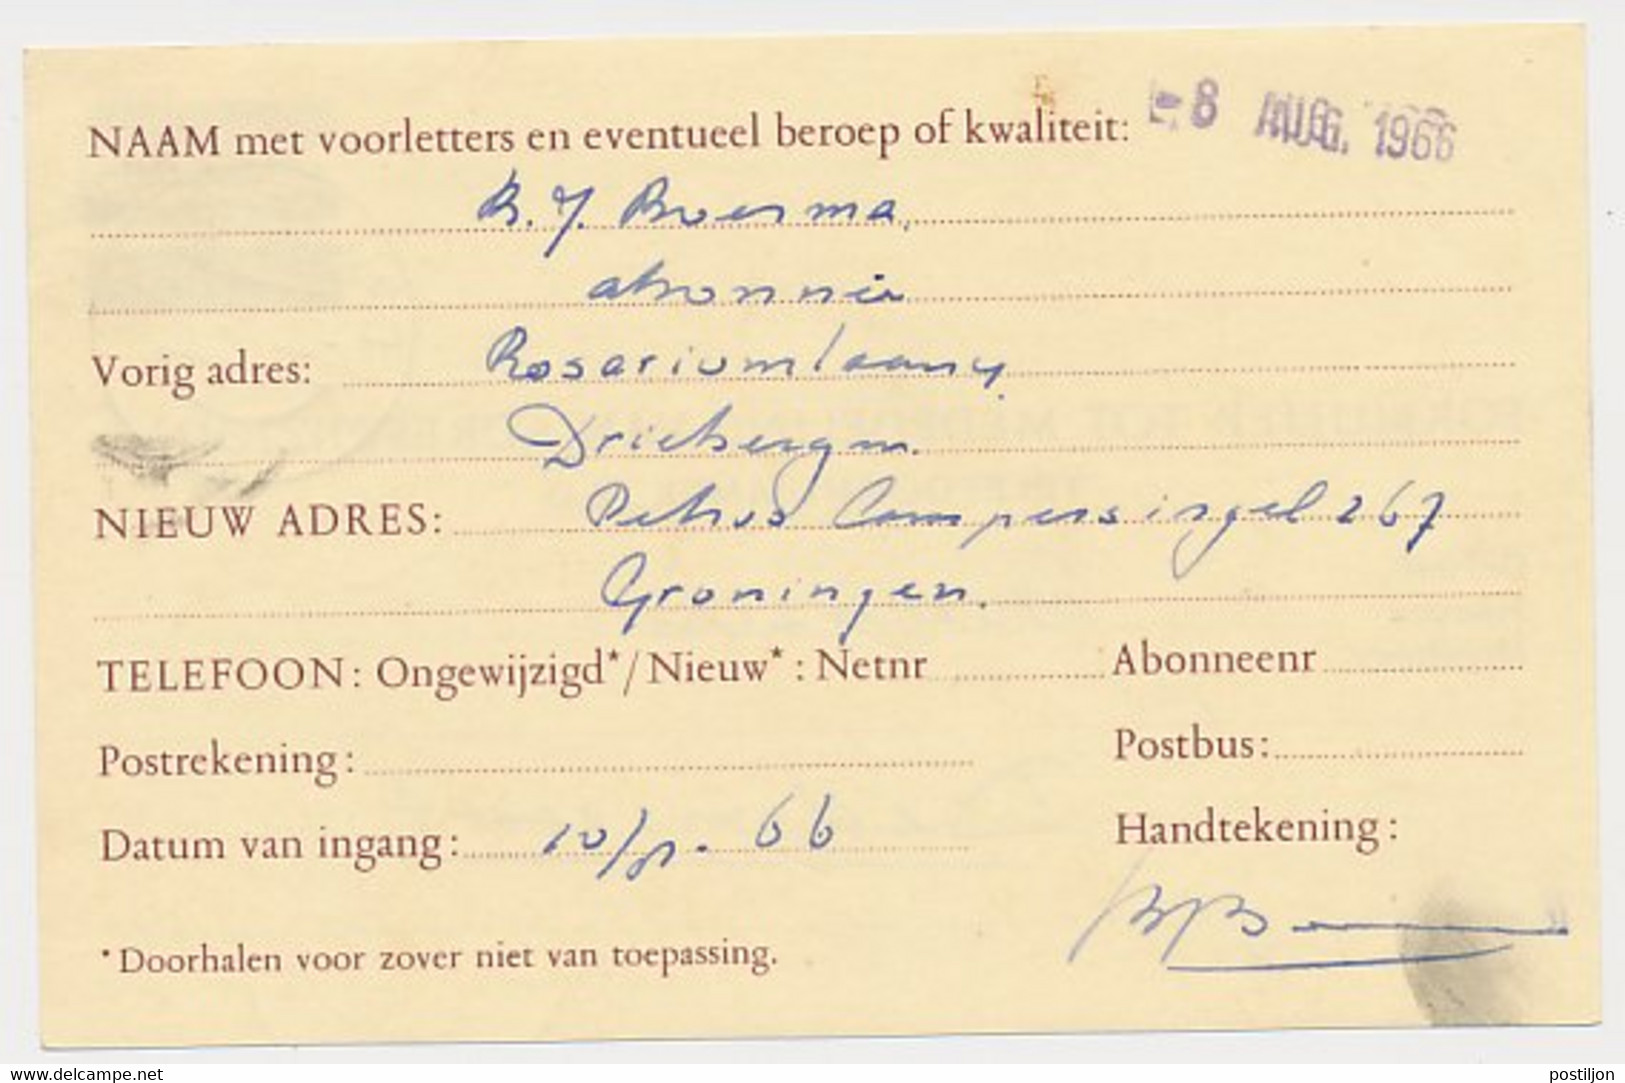 NAAM met voorletters en eventueel beroep of kwaliteit: -8 AUG. 1966
B. J. Boersma,
abonné
Vorig adres: Rosariumlaan 4
Driebergen.
NIEUW ADRES: Petrus Campersingel 267
Groningen.
TELEFOON: Ongewijzigd*/Nieuw*: Netnr Abonneenr
Postrekening: Postbus:
Datum van ingang: 10/8. 66 Handtekening:
*Doorhalen voor zover niet van toepassing.
www.delcampe.net postiljon